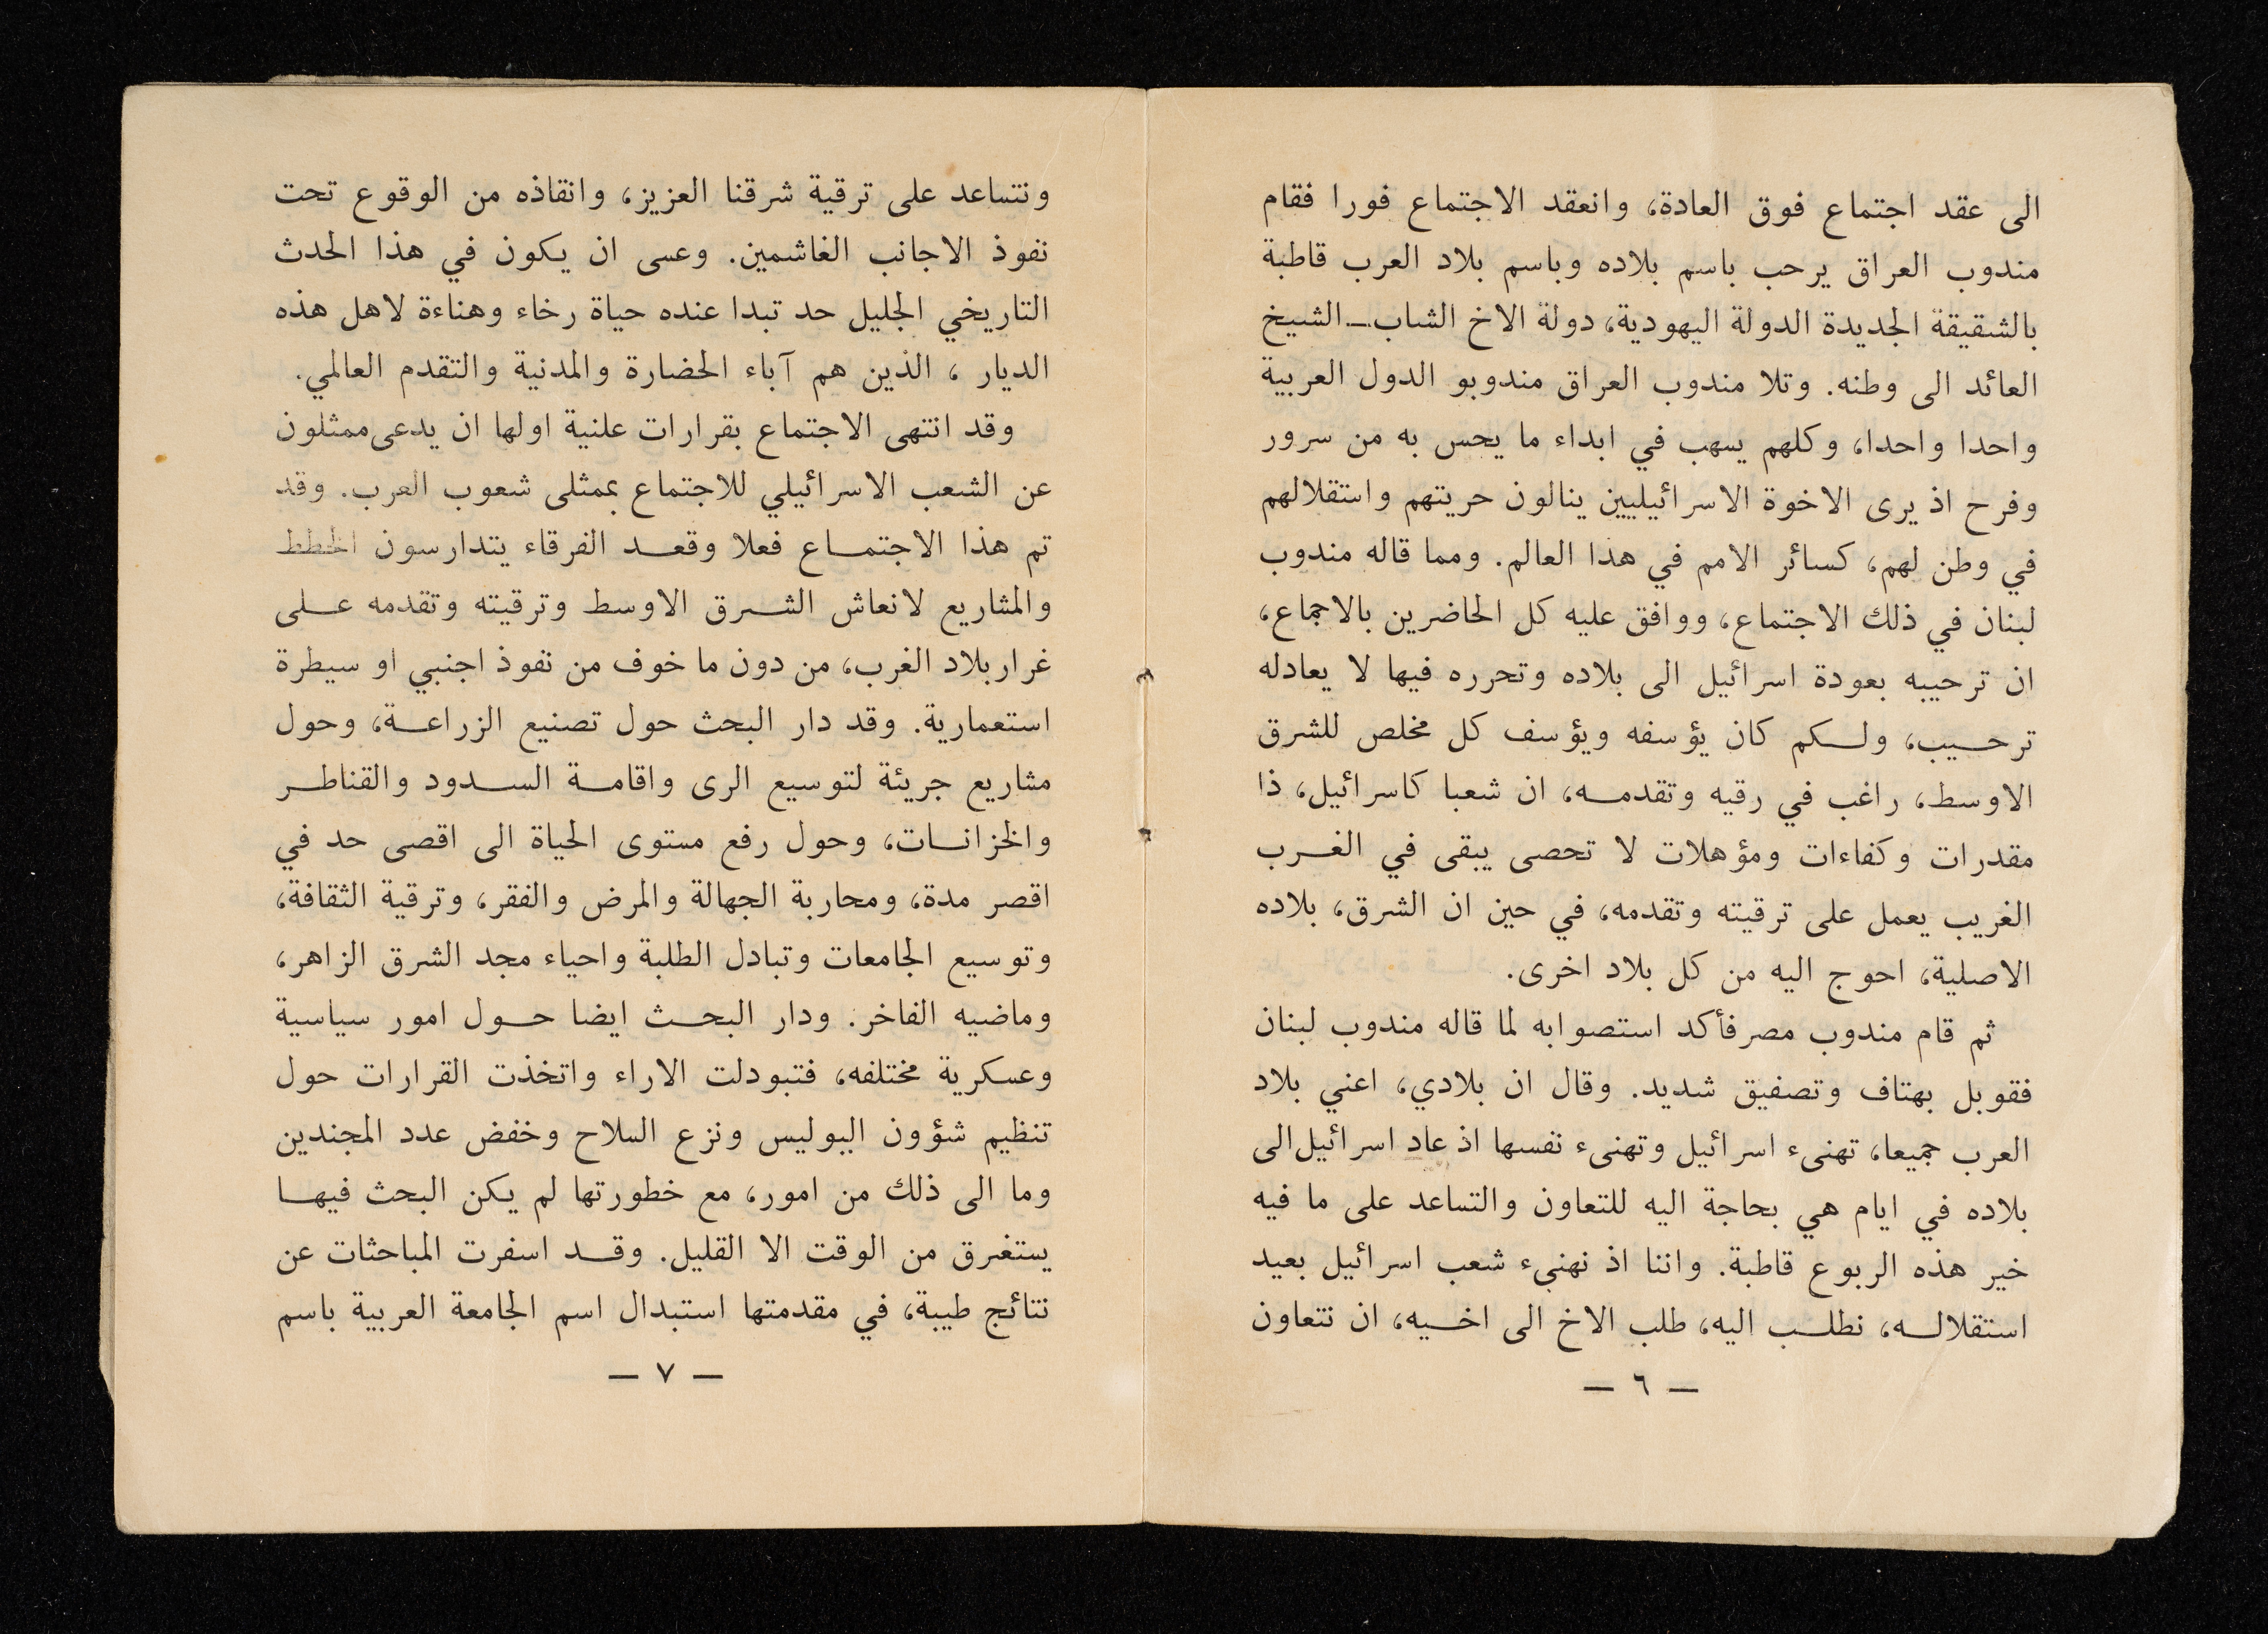 الى عقد اجتماع فوق العادة، وانعقد الاجتماع فورا فقام
مندوب العراق يرحب باسم بلاده وباسم بلاد العرب قاطبة
بالشقيقة الجديدة الدولة اليهودية، دولة الاخ الشاب ـ الشيخ
العائد الى وطنه. وتلا مندوب العراق مندوبو الدول العربية
واحدا واحدا، وكلهم يسهب في ابداء ما يحس به من سرور
وفرح اذ يرى الاخوة الاسرائيليين ينالون حريتهم واستقلالهم
في وطن لهم، كسائر الامم في هذا العالم. ومما قاله مندوب
لبنان في ذلك الاجتماع، ووافق عليه كل الحاضرين بالاجماع،
ان ترحيبه بعودة اسرائيل الى بلاده وتحرره فيها لا يعادله
ترحيب، ولكم كان يؤسفه ويؤسف كل مخلص للشرق
الاوسط، راغب في رقيه وتقدمه، ان شعبا كاسرائيل، ذا
مقدرات وكفاءات ومؤهلات لا تحصى يبقى في الغرب
الغريب يعمل على ترقيته وتقدمه، في حين ان الشرق، بلاده
الاصلية، احوج اليه من كل بلاد اخرى.
ثم قام مندوب مصر فأكد استصوابه لما قاله مندوب لبنان
فقوبل بهتاف وتصفيق شديد. وقال ان بلادي، اعني بلاد
العرب جميعا، تهنىء اسرائيل وتهنىء نفسها اذ عاد اسرائيل الى
بلاده في ايام هي بحاجة اليه للتعاون والتساعد على ما فيه
خير هذه الربوع قاطبة. واننا اذ نهنىء شعب اسرائيل بعيد
استقلاله، نطلب اليه، طلب الاخ الى اخيه، ان نتعاون
— ٦ —
ونتساعد على ترقية شرقنا العزيز، وانقاذه من الوقوع تحت
نفوذ الاجانب الغاشمين. وعسى ان يكون في هذا الحدث
التاريخي الجليل حد تبدا عنده حياة رخاء وهناءة لاهل هذه
الديار ، الذين هم آباء الحضارة والمدنية والتقدم العالمي.
وقد انتهى الاجتماع بقرارات علنية اولها ان يدعى ممثلون
عن الشعب الاسرائيلي للاجتماع بممثلى شعوب العرب. وقد
تم هذا الاجتماع فعلا وقعد الفرقاء يتدارسون الخطط
والمشاريع لانعاش الشرق الاوسط وترقيته وتقدمه على
غرار بلاد الغرب، من دون ما خوف من نفوذ اجنبي او سيطرة
استعمارية. وقد دار البحث حول تصنيع الزراعة، وحول
مشاريع جريئة لتوسيع الرى واقامة السدود والقناطر
والخزانات، وحول رفع مستوى الحياة الى اقصى حد في
اقصر مدة، ومحاربة الجهالة والمرض والفقر، وترقية الثقافة،
وتوسيع الجامعات وتبادل الطلبة واحياء مجد الشرق الزاهر،
وماضيه الفاخر. ودار البحث ايضا حول امور سياسية
وعسكرية مختلفه، فتبودلت الاراء واتخذت القرارات حول
تنظيم شؤون البوليس ونزع السلاح وخفض عدد المجندين
وما الى ذلك من امور، مع خطورتها لم يكن البحث فيها
يستغرق من الوقت الا القليل. وقد اسفرت المباحثات عن
نتائج طيبة، في مقدمتها استبدال اسم الجامعة العربية باسم
— ٧ —